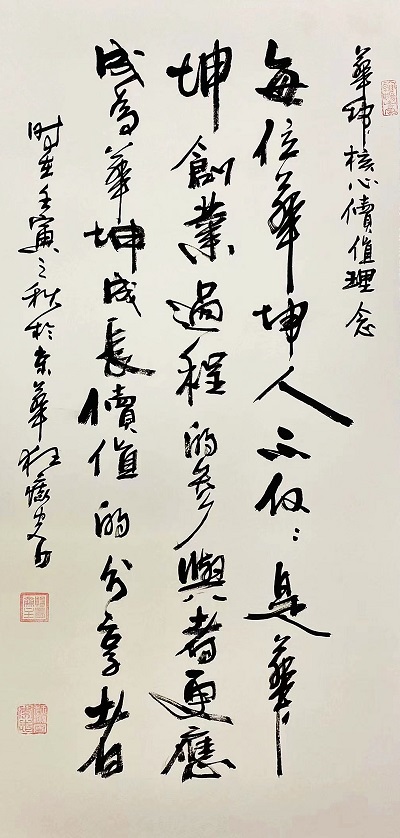 華坤核心價值理念
每位華坤人不仅仅是華
坤創業過程的參與者更應
成為華坤成長價值的分享者
时在壬寅之秋於东華